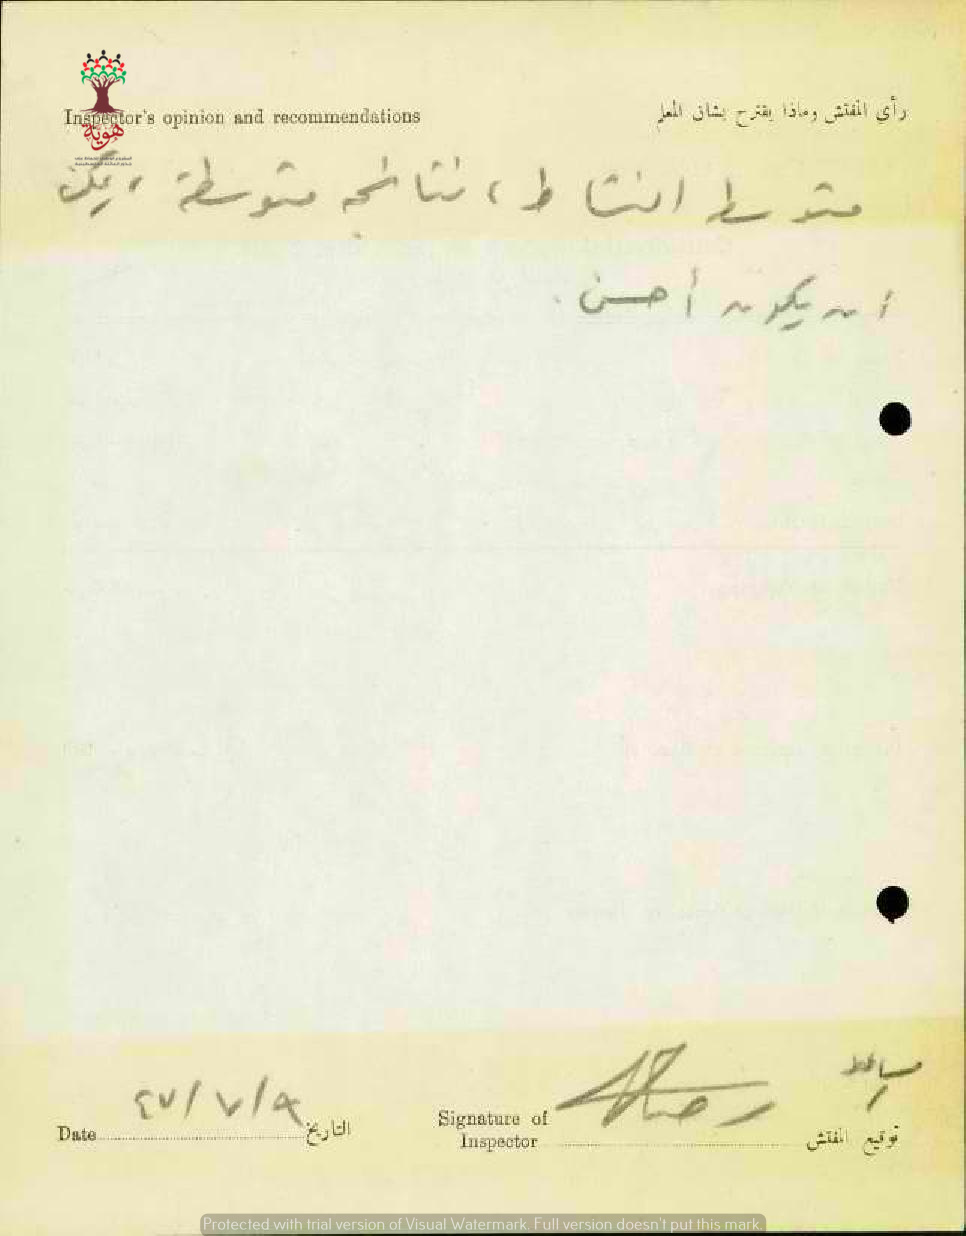 Inspector's opinion and recommendations
رأى المفتش وماذا يقترح بشان المعلم
هوية
متوسط النشاط، نتائجه متوسطة، يمكن
ان يكون أحسن.
٤٧/٧/٩
Date التاريخ
Signature of Inspector توقيع المفتش
Protected with trial version of Visual Watermark. Full version doesn't put this mark.